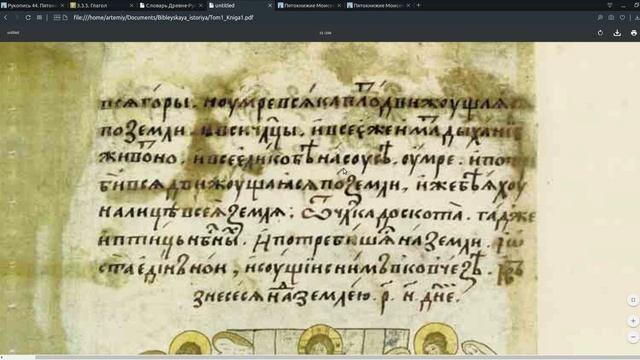 Рукопись 44. Пятокн
3.3.3. Глагол
Словарь Древне-Ру
untitled
Пятокнижие Моисе
Пятокнижие Моисе
file:///home/artemiy/Documents/Bibleyskaya_istoriya/Tom1_Kniga1.pdf
untitled
всѧ горы. и оумре всѧка плⷪ движоущаѧ
по земли. и вси члцы. и всее же има дыханїе
животно. и все елико бѣ на соусѣ, оумре. и пот
би всѧ движоущаѧсѧ по земли, иже бѣѧхоу
на лицѣ всеѧ землѧ; Ѿ члка до скота. га же
и птиць нбны. И потребишѧ на земли.
ста единъ нои, и соущїи с нимъ в ковчезѣ.
знесесѧ на землею. р. н. дне.